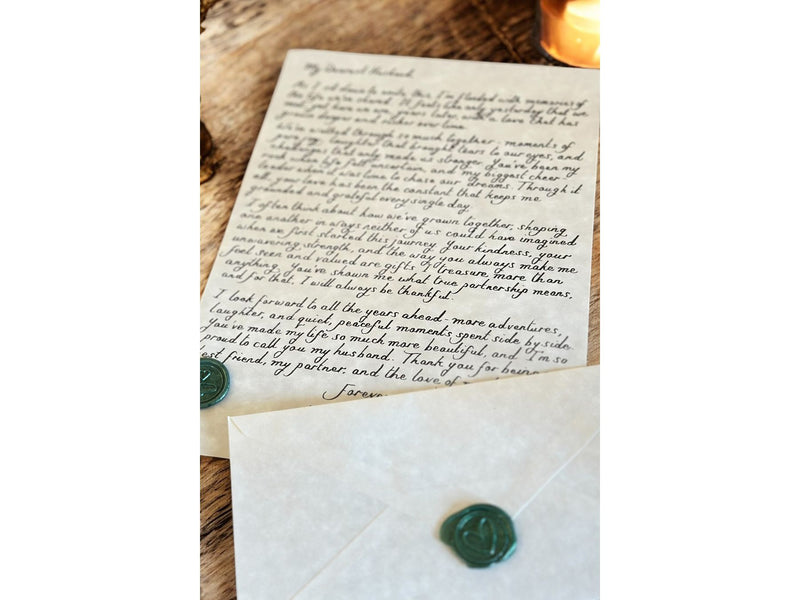 My Dearest Husband,
As I sit down to write this, I'm flooded with memories of
the life we've shared. It feels like only yesterday that we
met, yet here we are, years later, with a love that has
grown deeper and richer over time.
We've walked through so much together, moments of
pure joy, laughter that brought tears to our eyes, and
challenges that only made us stronger. You've been my
rock when life felt uncertain, and my biggest cheer
leader when it was time to chase our dreams. Through it
all, your love has been the constant that keeps me
grounded and grateful every single day.
I often think about how we've grown together, shaping
one another in ways neither of us could have imagined
when we first started this journey. Your kindness, your
unwavering strength, and the way you always make me
feel seen and valued are gifts I treasure more than
anything. You've shown me what true partnership means,
and for that, I will always be thankful.
I look forward to all the years ahead - more adventures,
laughter, and quiet, peaceful moments spent side by side.
You've made my life so much more beautiful, and I'm so
proud to call you my husband. Thank you for being
est friend, my partner, and the love of
Forever